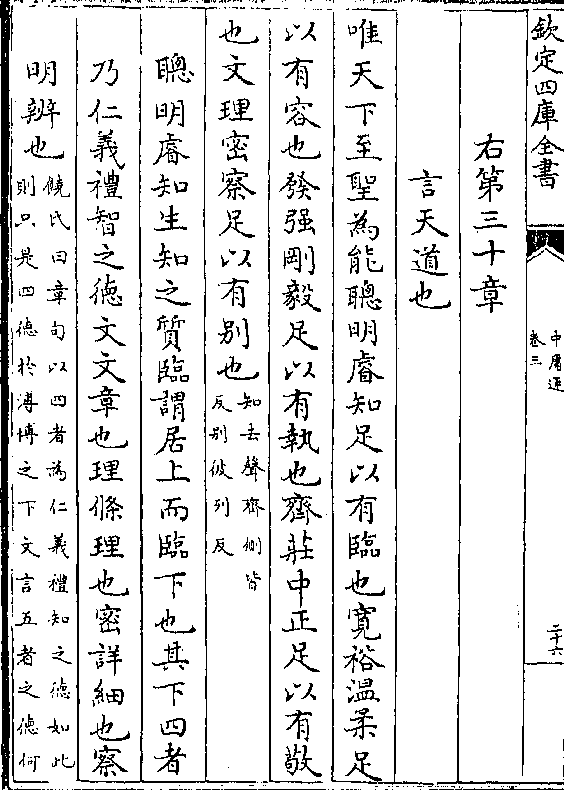 欽定四庫全書
中庸通
卷三
二十六
右第三十章
言天道也
唯天下至聖為能聰明睿知足以有臨也寛裕溫柔足
以有容也發强剛毅足以有執也齊莊中正足以有敬
也文理密察足以有别也知去聲齊側皆
反别彼列反
聰明睿知生知之質臨謂居上而臨下也其下四者
乃仁義禮智之德文文章也理條理也密詳細也察
明辨也饒氏曰章句以四者為仁義禮知之德如此
則只是四德於溥博之下文言五者之德何